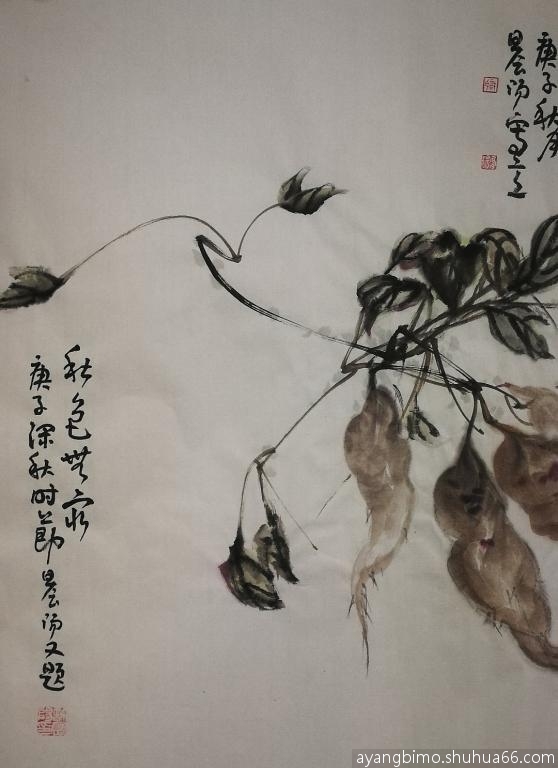 庚子秋月
晨阳寫之
秋色無穷
庚子深秋时节晨阳又题
ayangbimo.shuhua66.com